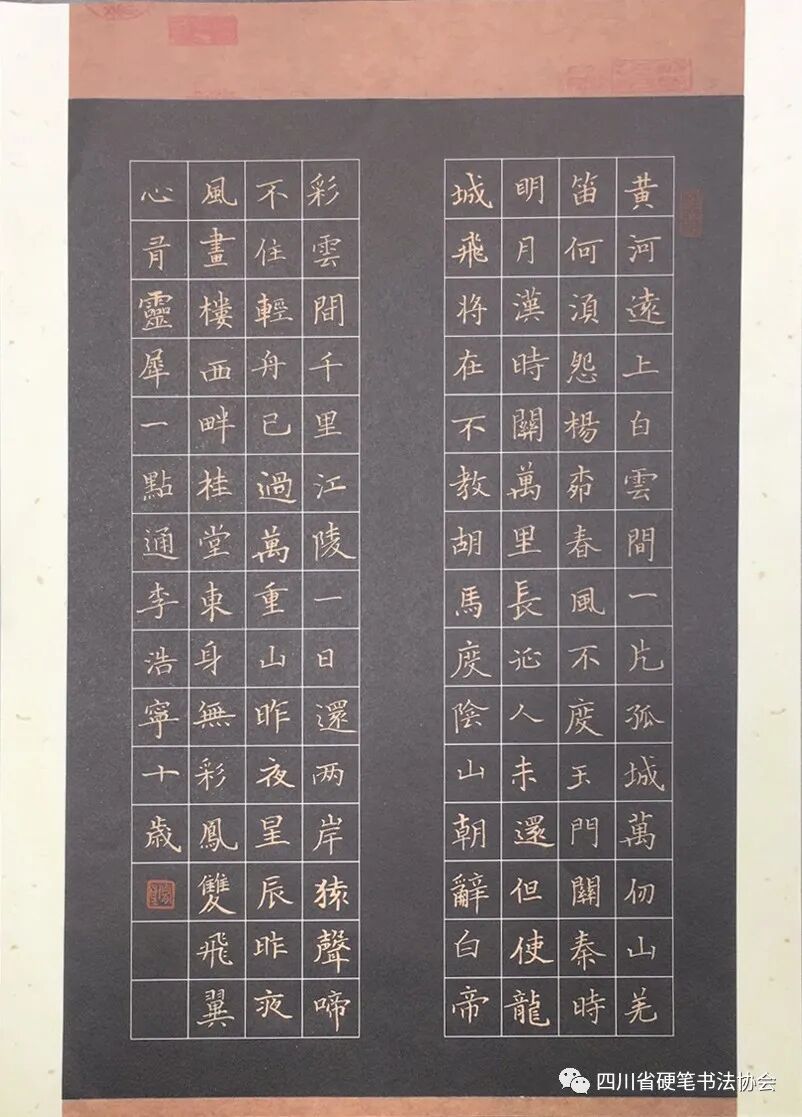 黃河遠上白雲間一片孤城萬仞山羌
笛何須怨楊柳春風不度玉門關秦時
明月漢時關萬里長征人未還但使龍
城飛將在不教胡馬度陰山朝辭白帝
彩雲間千里江陵一日還两岸猿聲啼
不住輕舟已過萬重山昨夜星辰昨夜
風畫樓西畔桂堂東身無彩鳳雙飛翼
心有靈犀一點通李浩寧十歲
四川省硬笔书法协会